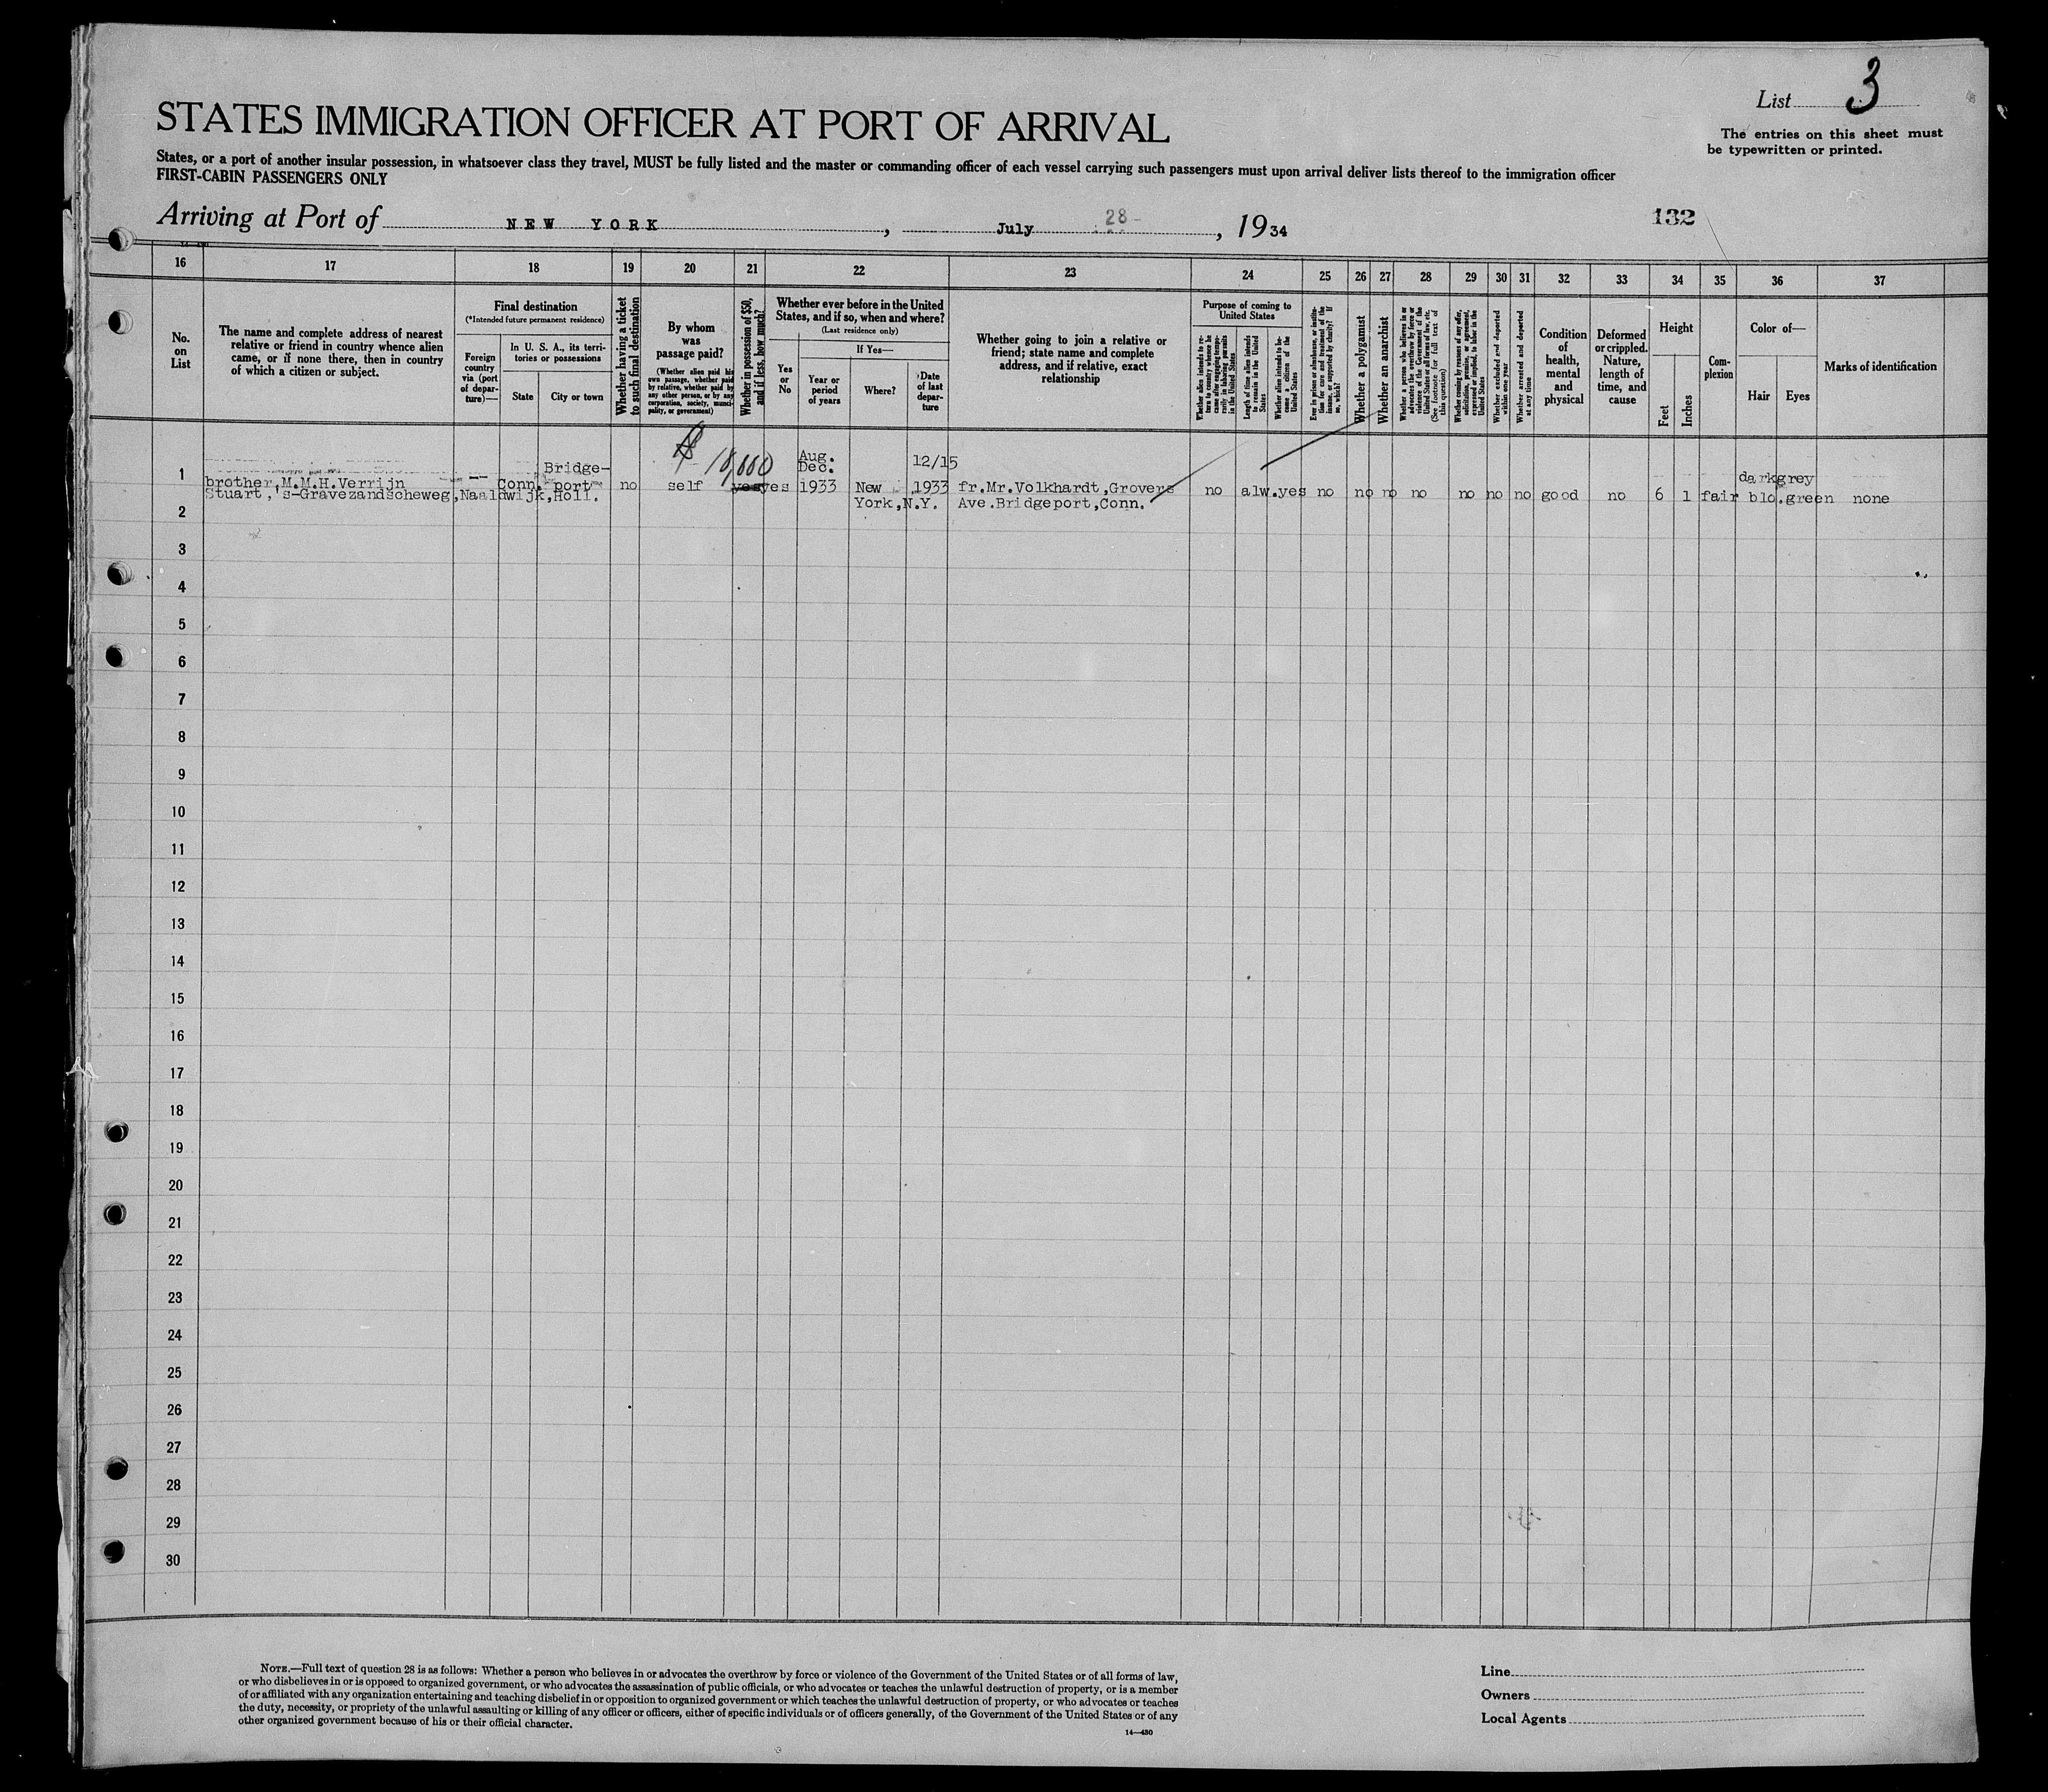 List 3
STATES IMMIGRATION OFFICER AT PORT OF ARRIVAL
The entries on this sheet must
be typewritten or printed.
States, or a port of another insular possession, in whatsoever class they travel, MUST be fully listed and the master or commanding officer of each vessel carrying such passengers must upon arrival deliver lists thereof to the immigration officer
FIRST-CABIN PASSENGERS ONLY
Arriving at Port of NEW YORK, July 28, 1934
132
16 17 18 19 20 21 22 23 24 25 26 27 28 29 30 31 32 33 34 35 36 37
No.
on
List
The name and complete address of nearest
relative or friend in country whence alien
came, or if none there, then in country
of which a citizen or subject.
Final destination
(*Intended future permanent residence)
Foreign
country
via (port
of depar-
ture)—
In U. S. A., its terri-
tories or possessions
State
City or town
Whether having a ticket
to such final destination
By whom
was
passage paid?
(Whether alien paid his
own passage, whether paid
by relative, whether paid by
any other person, or by any
corporation, society, munici-
pality, or government)
Whether in possession of $50,
and if less, how much?
Whether ever before in the United
States, and if so, when and where?
(Last residence only)
Yes
or
No
If Yes—
Year or
period
of years
Where?
Date
of last
depar-
ture
Whether going to join a relative or
friend; state name and complete
address, and if relative, exact
relationship
Purpose of coming to
United States
Whether alien intends to re-
turn to country whence he
came after engaging tempo-
rarily in laboring pursuits
in the United States
Length of time alien intends
to remain in the United
States
Whether alien intends to be-
come a citizen of the
United States
Ever in prison or almshouse, or institu-
tion for care and treatment of the
insane, or supported by charity? If
so, which?
Whether a polygamist
Whether an anarchist
Whether a person who believes in or
advocates the overthrow by force or
violence of the Government of the
United States or all forms of law, etc.
(See footnote for full text of
this question)
Whether coming by reason of any offer,
solicitation, promise, or agreement,
expressed or implied, to labor in the
United States
Whether excluded and deported
within one year
Whether arrested and deported
at any time
Condition
of
health,
mental
and
physical
Deformed
or crippled.
Nature,
length of
time, and
cause
Height
Feet
Inches
Com-
plexion
Color of—
Hair
Eyes
Marks of identification
$ 18,000
Bridge- Aug. 12/15 dark grey
1 brother,M.M.H.Verrijn -- Conn. port no self yes yes Dec. 1933 New 1933 fr.Mr.Volkhardt,Grovers no alw. yes no no no no no no no good no 6 1 fair blo. green none
Stuart,'s-Gravezandscheweg,Naaldwijk,Holl. York,N.Y. Ave.Bridgeport,Conn.
2
3
4
5
6
7
8
9
10
11
12
13
14
15
16
17
18
19
20
21
22
23
24
25
26
27
28
29
30
NOTE.—Full text of question 28 is as follows: Whether a person who believes in or advocates the overthrow by force or violence of the Government of the United States or of all forms of law,
or who disbelieves in or is opposed to organized government, or who advocates the assassination of public officials, or who advocates or teaches the unlawful destruction of property, or is a member
of or affiliated with any organization entertaining and teaching disbelief in or opposition to organized government or which teaches the unlawful destruction of property, or who advocates or teaches
the duty, necessity, or propriety of the unlawful assaulting or killing of any officer or officers, either of specific individuals or of officers generally, of the Government of the United States or of any
other organized government because of his or their official character.
14—430
Line
Owners
Local Agents